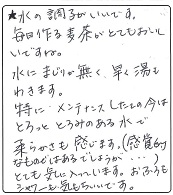 ★水の調子がいいです。
毎日作る麦茶がとてもおいし
いですね。
水にまじりが無く、早く湯も
わきます。
特に メンテナンスしたもの今は
とろっと とろみのある 水で
柔らかさも感じます。(感覚的
なものではあるでしょうが・・・)
とても気に入っています。おふろも
シャワーも気もちいいです。